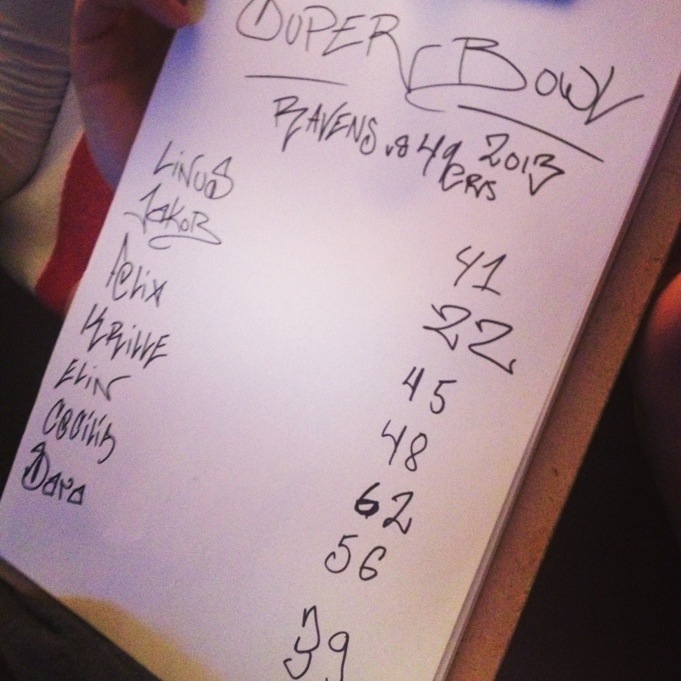 SUPER BOWL
RAVENS vs 49ERS 2013
LINUS 41
JAKOB 22
Felix 45
KRILLE 48
ELIN 62
Cecilia 56
Sara 39